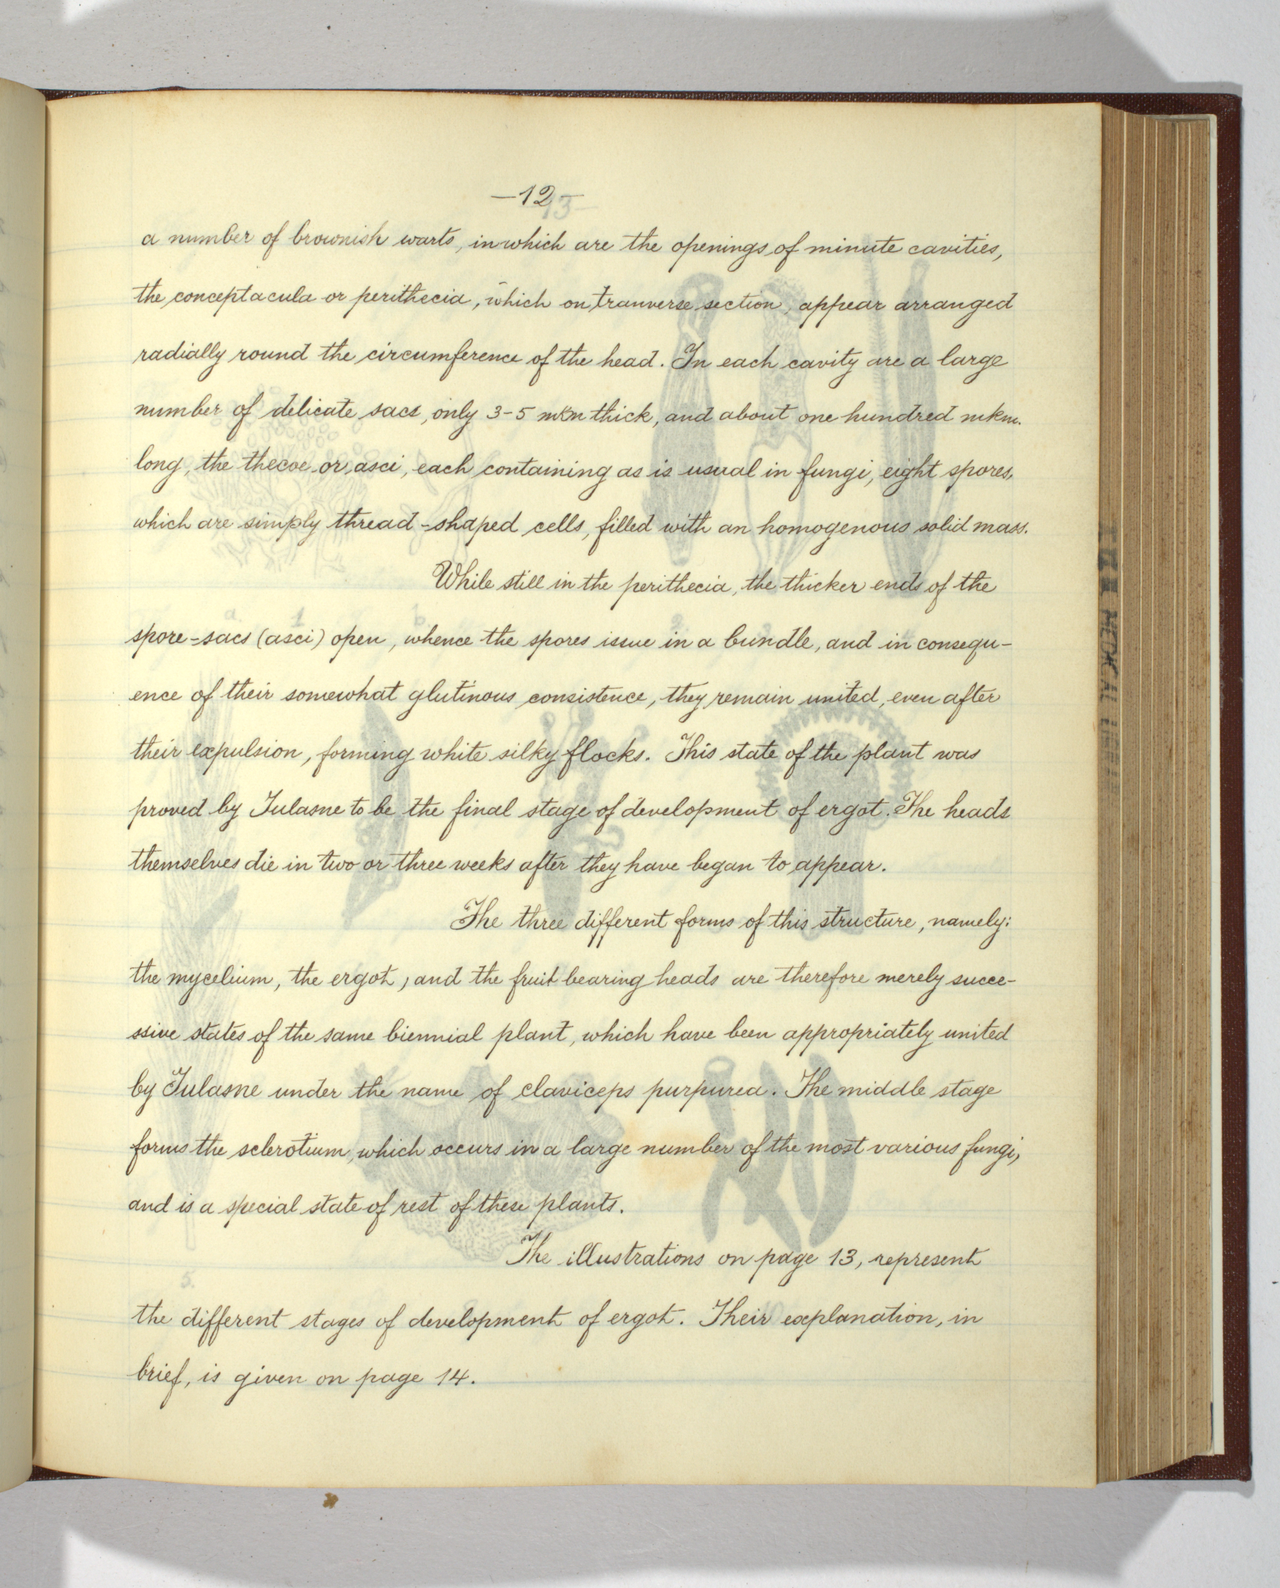 —12
a number of brownish warts, in which are the openings of minute cavities,
the conceptacula or perithecia, which on tranverse section, appear arranged
radially round the circumference of the head. In each cavity are a large
number of delicate sacs, only 3-5 mkm thick, and about one hundred mkm.
long, the thecoe or asci, each containing as is usual in fungi, eight spores,
which are simply thread-shaped cells, filled with an homogenous solid mass.
While still in the perithecia, the thicker ends of the
spore-sacs (asci) open, whence the spores issue in a bundle, and in consequ-
ence of their somewhat glutinous consistence, they remain united, even after
their expulsion, forming white silky flocks. This state of the plant was
proved by Tulasne to be the final stage of development of ergot. The heads
themselves die in two or three weeks after they have began to appear.
The three different forms of this structure, namely:
the mycelium, the ergot, and the fruit bearing heads are therefore merely succe-
ssive states of the same biennial plant, which have been appropriately united
by Tulasne under the name of claviceps purpurea. The middle stage
forms the sclerotium, which occurs in a large number of the most various fungi,
and is a special state of rest of these plants.
The illustrations on page 13, represent
the different stages of development of ergot. Their explanation, in
brief, is given on page 14.
MEDICAL